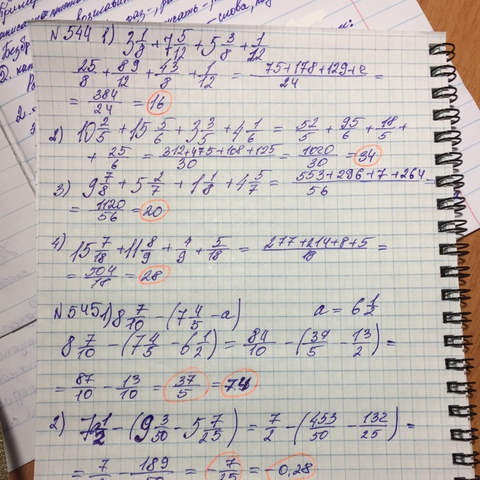 №544 1) 3 1/8 + 7 5/12 + 5 3/8 + 1/12
25/8 + 89/12 + 43/8 + 1/12 = (75+178+129+2)/24 =
= 384/24 = 16
2) 10 2/5 + 15 5/6 + 3 3/5 + 4 1/6 = 52/5 + 95/6 + 18/5 +
+ 25/6 = (312+475+108+125)/30 = 1020/30 = 34
3) 9 7/8 + 5 2/7 + 1 1/8 + 4 5/7 = (553+296+7+264)/56 =
= 1120/56 = 20
4) 15 7/18 + 11 8/9 + 4/9 + 5/18 = (277+214+8+5)/18 =
= 504/18 = 28
№545 1) 8 7/10 - (7 4/5 - a) a = 6 1/2
8 7/10 - (7 4/5 - 6 1/2) = 87/10 - (39/5 - 13/2) =
= 87/10 - 13/10 = 37/5 = 7.4
2) 3 1/2 - (9 3/50 - 5 7/25) = 7/2 - (453/50 - 132/25) =
= 7/2 - 189/50 = - 7/25 = -0,28